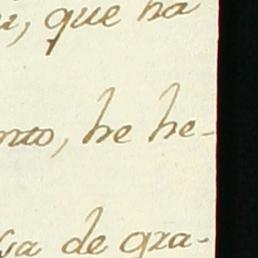 , que ha
nto, he he-
ça de gra-